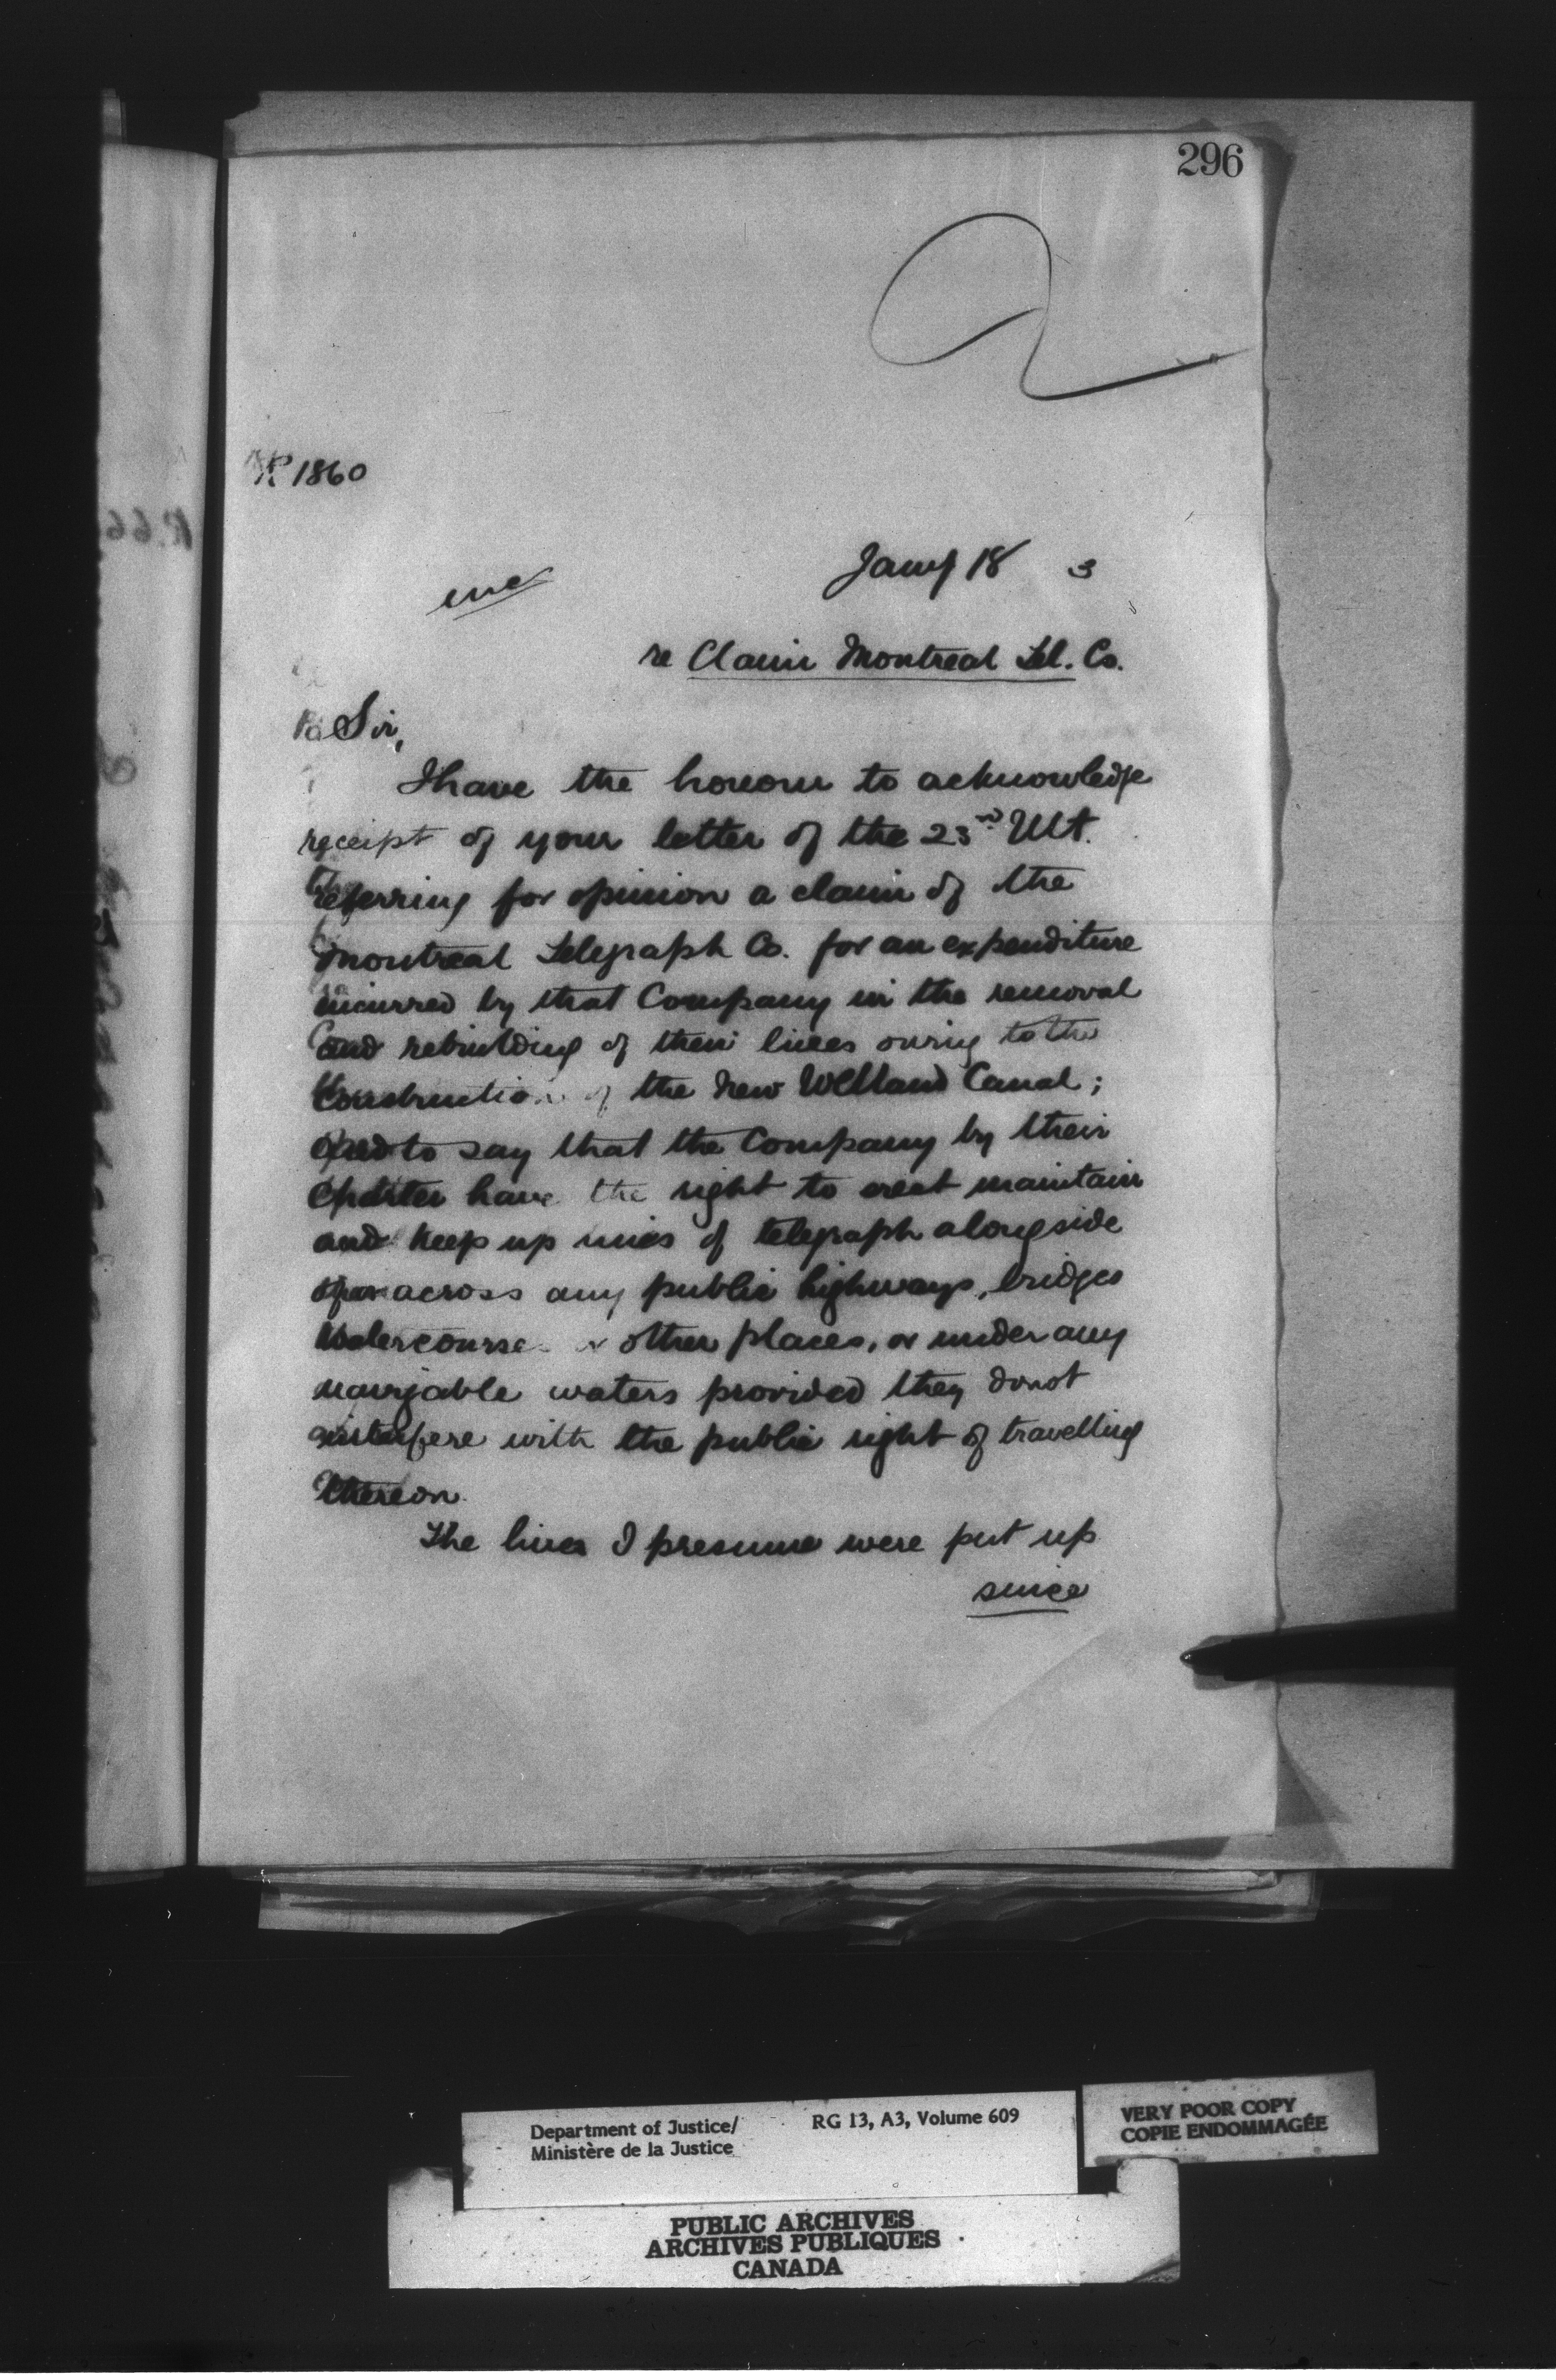 296
1860
Jany 18 3
re Claim Montreal Tel. Co.
Sir,
I have the honour to acknowledge
receipt of your letter of the 23rd Ult.
referring for opinion a claim of the
Montreal Telegraph Co. for an expenditure
incurred by that Company in the removal
and rebuilding of their lines owing to the
Construction of the New Welland Canal;
and to say that the Company by their
Charter have the right to erect maintain
and keep up lines of telegraph alongside
or across any public highways, bridges
Watercourses or other places, or under any
navigable waters provided they do not
interfere with the public right of travelling
thereon.
The lines I presume were put up
since
Department of Justice/
Ministère de la Justice
RG 13, A3, Volume 609
VERY POOR COPY
COPIE ENDOMMAGÉE
PUBLIC ARCHIVES
ARCHIVES PUBLIQUES
CANADA